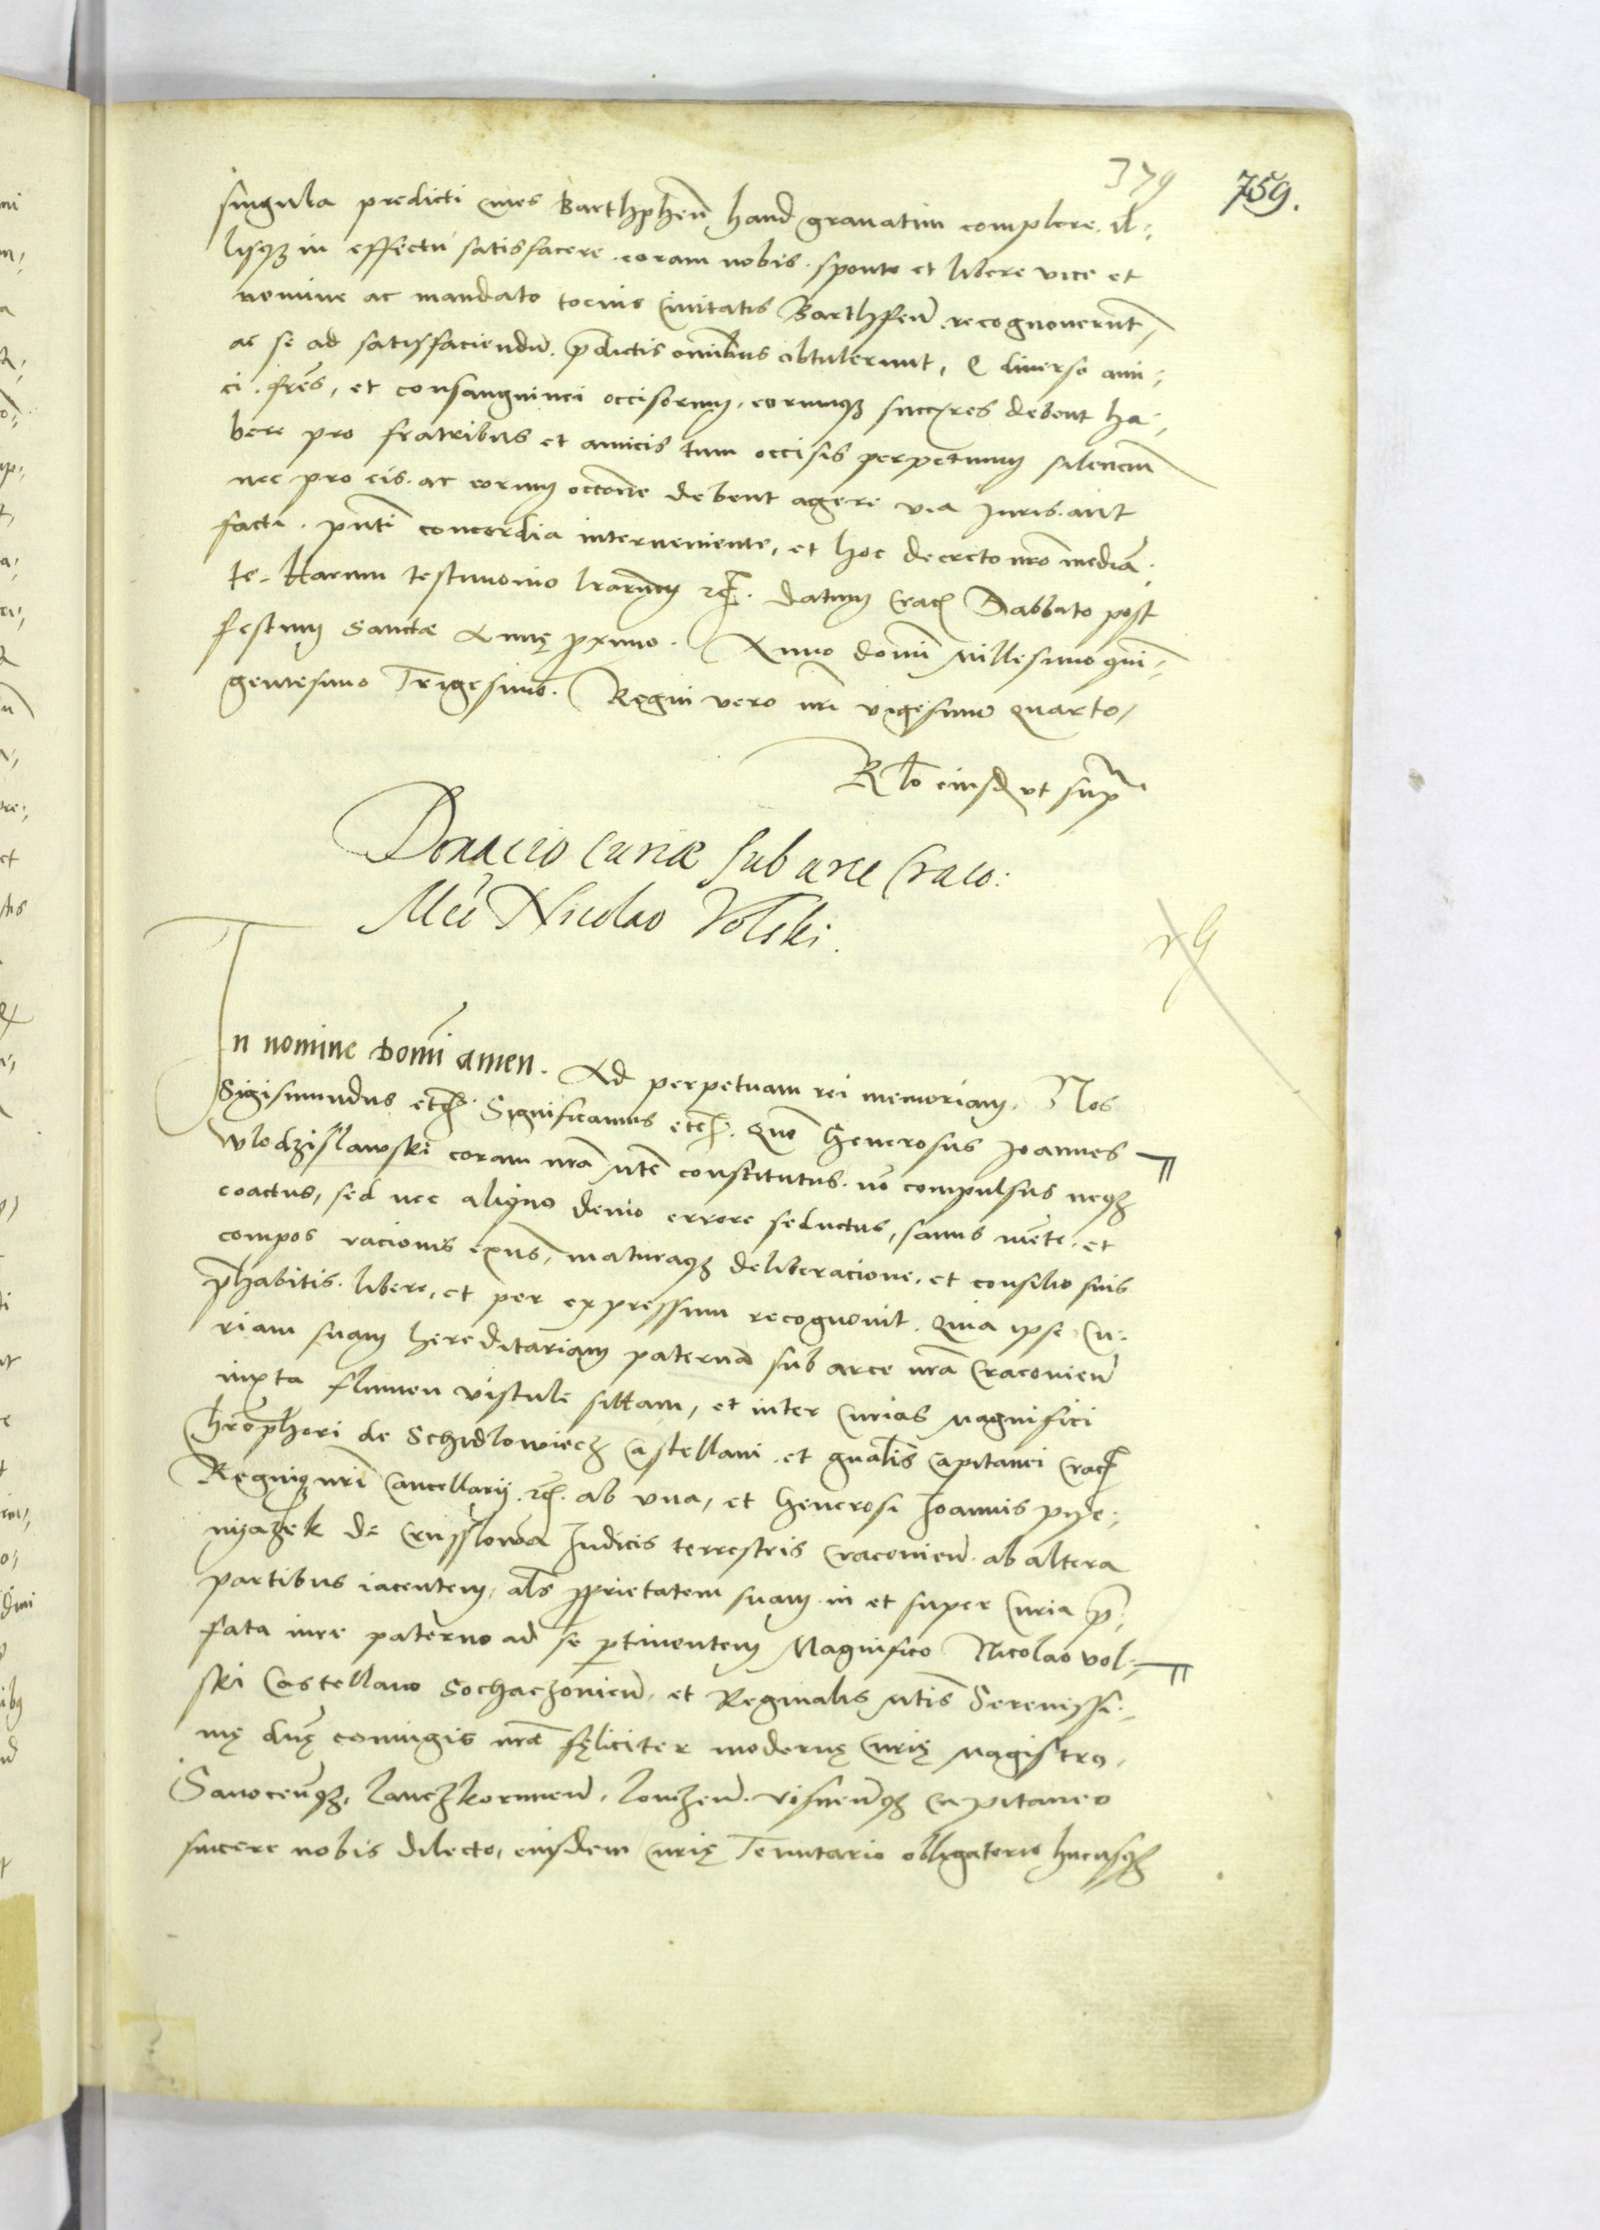 379 759.
singula predicti cives Barthphen̄ haud gravatim complere. il-
lisqȝ in effectu satisfacere. coram nobis. sponte et libere vice et
nomine ac mandato tocius Civitatis Barthfen̄ recognoverunt,
ac se ad satisfaciendū. p̄dictis om̄ibus obtulerunt, Q diverso ami-
ci. fr̄es, et consanguinei occisorum, eorumqȝ succ̄res debent ha-
bere pro fratribus et amicis tum occisis perpetuum silenciū
nec pro eis. ac eorum occōne debent agere via Juris. aut
facti. pn̄ti concordia interveniente, et hoc decreto nr̄o mediā-
te. Harum testimonio lr̄arum rc̄. Datum Crac̄ Sabbato post
festum Sanctæ Annę proximo. Anno Domī Millesimo quin-
gentesimo Trigesimo. Regni vero nr̄i vigesimo quarto,
Rl̄o eiusd̄ ut supra
Donacio Curiæ sub arce Craco:
Mco Nicolao Volski.
In nomine Domī amen. Ad perpetuam rei memoriam. Nos
Sigismundus etc̄. Significamus etc̄. Quō Generosus Joannes
Wlodzislawski coram nr̄a Mte constitutus. nō compulsus neqȝ
coactus, sed nec aliquo devio errore seductus, sanus mente. et
compos racionis exn̄s, maturaqȝ deliberacione. et consilio suis
p̄habitis. libere, et per expressum recognovit. Quia ipse Cu-
riam suam hereditariam paternā sub arce nr̄a Cracovien̄
iuxta flumen Vistule sittam, et inter Curias Magnifici
Chr̄ophori de Schidlowiecz Castellani. et gn̄alis Capitanei Crac̄
Regniqȝ nr̄i Cancellarij. rc̄. ab una, et Generosi Joannis pye-
nyazek de Crusslowa Judicis terrestris Cracovien̄. ab altera
partibus iacentem, al̄s p̄prietatem suam in et super Curia p̄-
fata iure paterno ad se pertinentem Magnifico Nicolao Vol-
ski Castellano Sochaczovien̄. et Reginalis Mtis Serenissi-
mę dn̄ę coniugis nr̄æ fęliciter modernę Curię Magistro,
Sanocen̄qȝ, Lanczkorunen̄, Lomzen̄. Visnen̄qȝ Capitaneo
sincere nobis dilecto, eiusdem Curię Tenutario obligatorio hucusqȝ